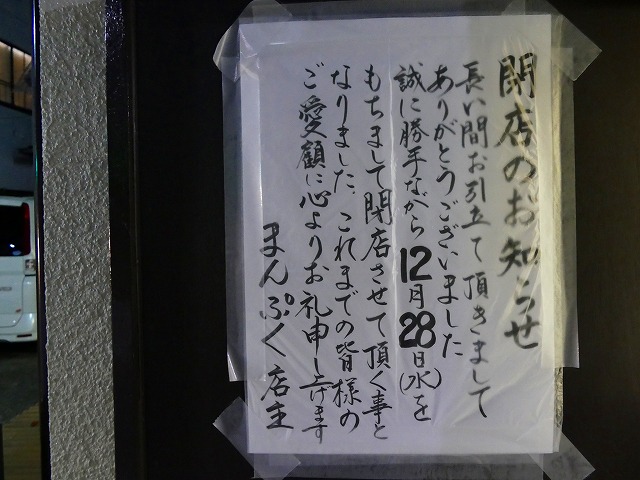 閉店のお知らせ
長い間お引立て頂きまして
ありがとうございました
誠に勝手ながら12月28日(水)を
もちまして閉店させて頂く事と
なりました。これまでの皆様の
ご愛顧に心よりお礼申し上げます
まんぷく店主